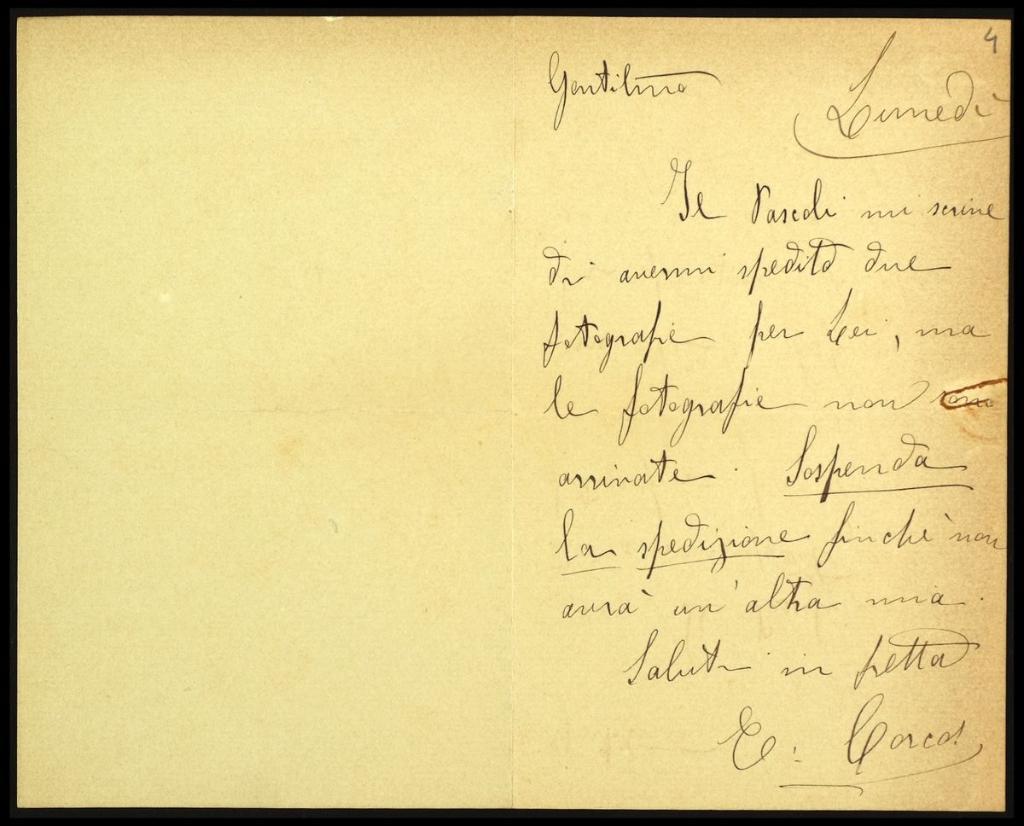 4
Gentilmo
Lunedì
Il Pascoli mi scrive
di avermi spedito due
fotografie per Lei, ma
le fotografie non sono
arrivate. Sospenda
la spedizione finchè non
avrà un'altra mia.
Saluti in fretta
E. Corcos